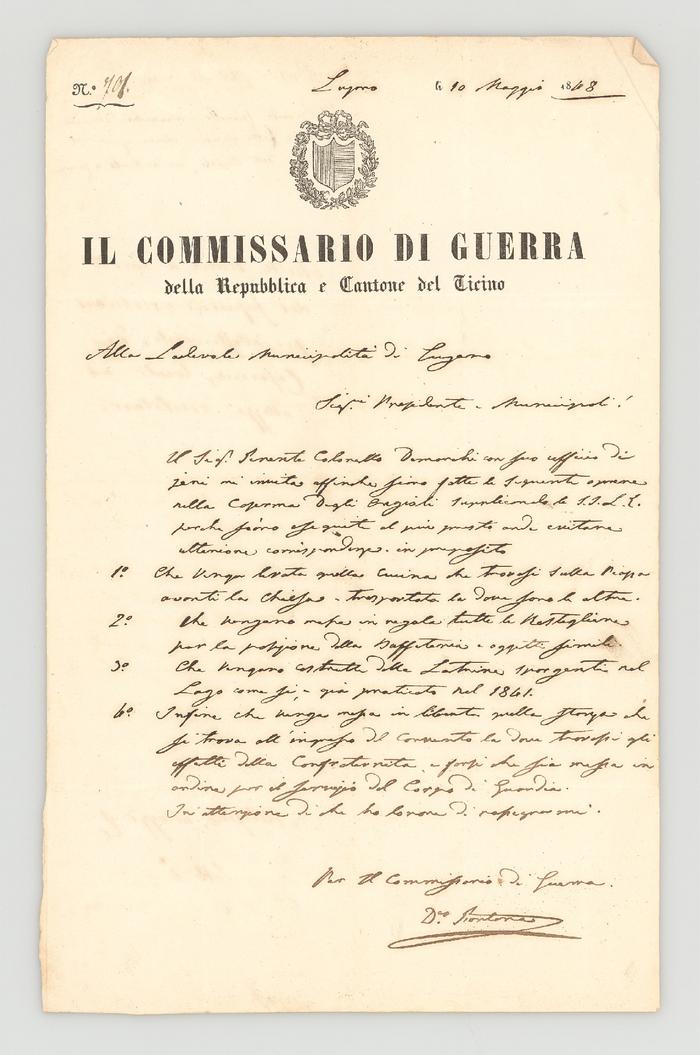 N.°
Lugano li 10 Maggio 1848
IL COMMISSARIO DI GUERRA
della Repubblica e Cantone del Ticino
Alla Lodevole Municipalità di Lugano
Sig.ri Presidente e Municipali!
Il Sig.r Tenente Colonello Demarchi con suo ufficio di
jeri mi invita affinche siano fatte le seguenti opere
nella Caserma Degli Angioli le S.S.L.L.
perche sieno eseguite al più presto onde evitare
ulteriore corrispondenza in proposito
1.° Che venga levata quella Cucina che trovasi sulla Piazza
avanti la Chiesa e trasportata la dove sono le altre.
2.° Che vengano messe in regola tutte le Rastegliere
per la posizione della Buffetteria e oggetti simili.
3.° Che vengano costrutte delle Latrine sporgenti nel
Lago come si è già praticato nel 1841.
4.° Infine che venga messa in libertà quella stanza che
si trova all'ingresso del Convento la dove trovasi gli
effetti della Confraternita e forsi che sia messa in
ordine per il servizio del Corpo di Guardia.
In attenzione di che ho l'onore di rassegnarmi.
Per Il Commissario di Guerra.
D.co Fontana